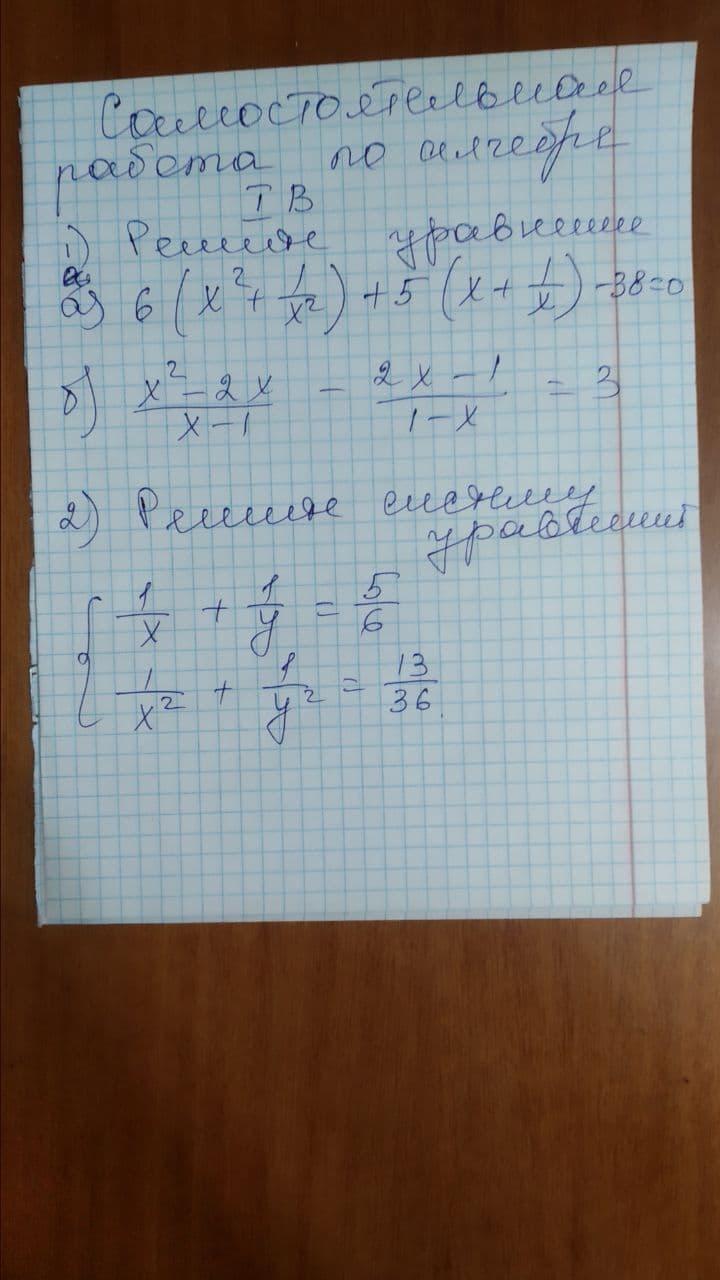 Самостоятельная
работа по алгебре
I В
1) Решите уравнение
а) 6(x² + 1/x²) + 5(x + 1/x) - 38 = 0
б) (x² - 2x)/(x - 1) - (2x - 1)/(1 - x) = 3
2) Решите систему
уравнений
{ 1/x + 1/y = 5/6
1/x² + 1/y² = 13/36